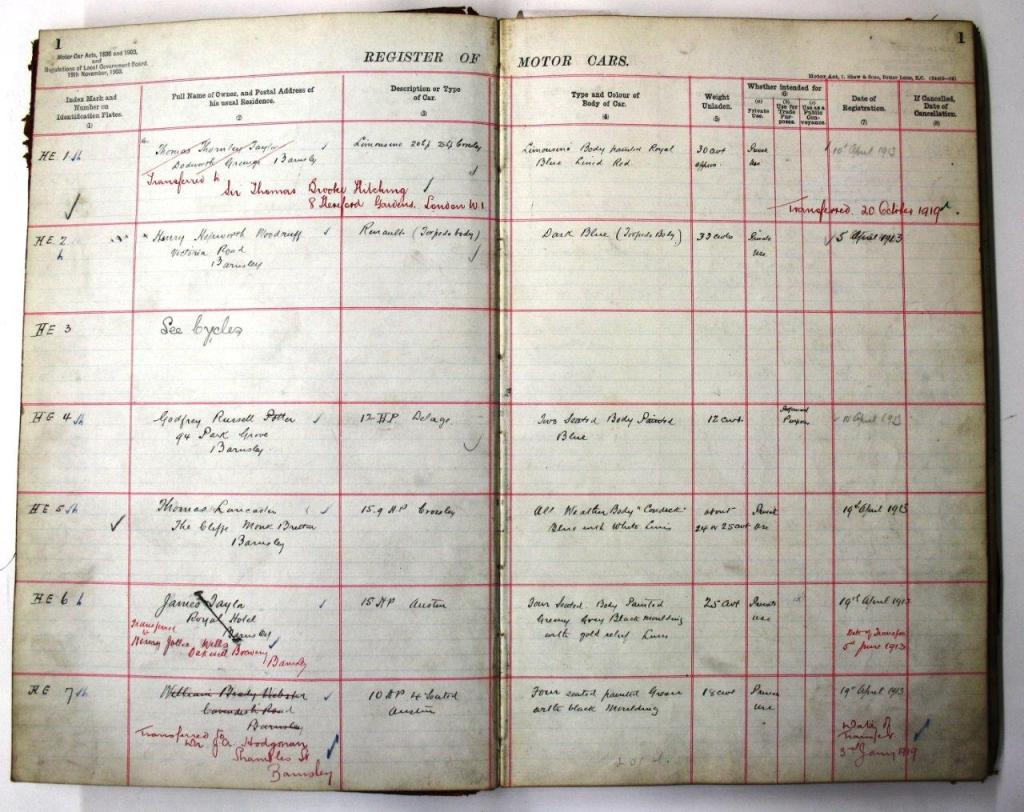 1
Motor Car Acts, 1896 and 1903,
and
Regulations of Local Government Board,
19th November, 1903.
REGISTER OF MOTOR CARS.
1
Index Mark and Number on Identification Plates. (1)
Full Name of Owner, and Postal Address of his usual Residence. (2)
Description or Type of Car. (3)
Type and Colour of Body of Car. (4)
Weight Unladen. (5)
Whether intended for (6)
(a) Private Use.
(b) Use for Trade Purposes.
(c) Use as a Public Conveyance.
Date of Registration. (7)
If Cancelled, Date of Cancellation. (8)
HE. 1
Thomas Thornley Taylor
Dodworth Grange Barnsley
Transferred to
Sir Thomas Brooke Hitching
8 Hereford Gardens. London W.1
Limousine 20 Crossley
Limousine Body painted Royal
Blue Lined Red
30 cwt
approx
Private
Use
10th April 1913
Transferred. 20 October 1919
HE. 2
Henry Hepworth Woodruff
Victoria Road
Barnsley
Renault (Torpedo body)
Dark Blue (Torpedo Body)
33 cwts
Private
Use
5 April 1913
HE 3
See Cycles
HE 4
Godfrey Russell Potter
94 Park Grove
Barnsley
12 HP Delage
Two Seated Body Painted
Blue
12 cwt
April 1913
HE 5
Thomas Lancaster
The Cliffe Monk Bretton
Barnsley
15.9 HP Crossley
All Weather Body "
Blue with White Lines
about
24 or 25 cwt
Private
use
19th April 1913
HE 6
James Taylor
Royal Hotel
Barnsley
Transferred
to
Henry Wells
Oakwell Brewery
Barnsley
15 HP Austin
Four Seated Body Painted
Greeny Grey Black Moulding
with gold relief Lines
25 cwt
Private
use
19th April 1913
Date of Transfer
5th June 1913
HE 7
William Brady Webster
Cavendish Road
Barnsley
Transferred to
Shambles St
Barnsley
10 HP 4 Seated
Austin
Four seated painted Green
with black Moulding
18 cwt
Private
Use
19th April 1913
Date of
Transfer
3rd Jany 1919